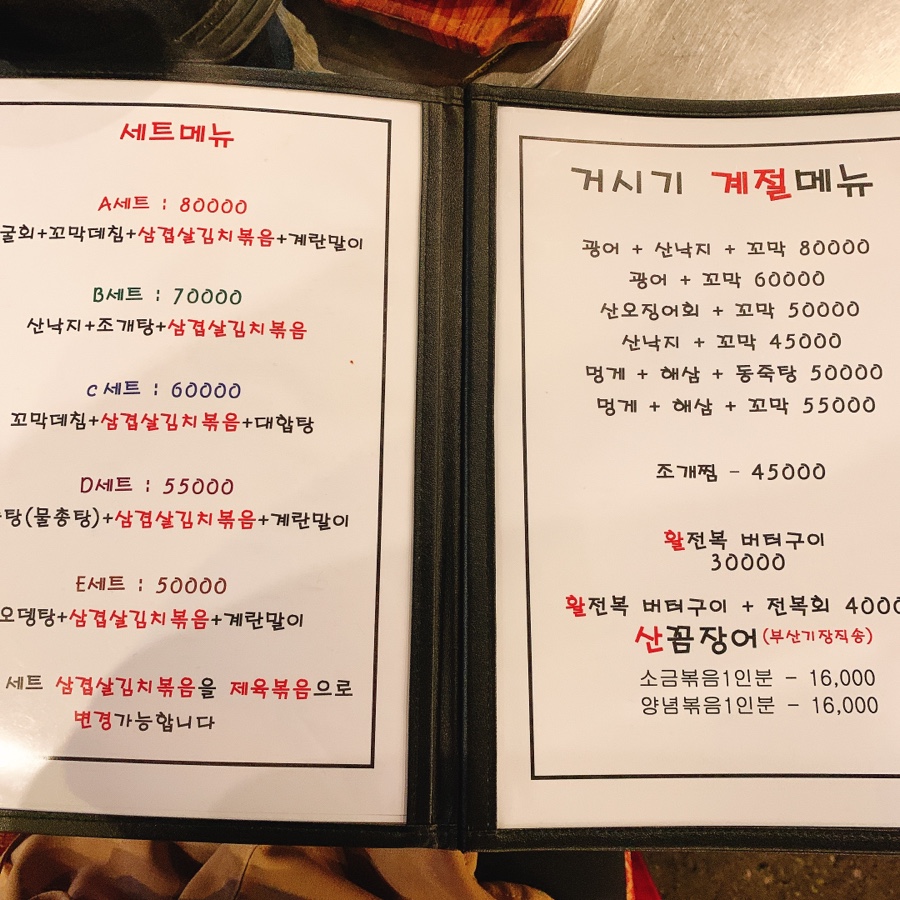 세트메뉴
A세트 : 80000
굴회+꼬막데침+삼겹살김치볶음+계란말이
B세트 : 70000
산낙지+조개탕+삼겹살김치볶음
C세트 : 60000
꼬막데침+삼겹살김치볶음+대합탕
D세트 : 55000
탕(물총탕)+삼겹살김치볶음+계란말이
E세트 : 50000
오뎅탕+삼겹살김치볶음+계란말이
세트 삼겹살김치볶음을 제육볶음으로
변경가능합니다
거시기 계절메뉴
광어 + 산낙지 + 꼬막 80000
광어 + 꼬막 60000
산오징어회 + 꼬막 50000
산낙지 + 꼬막 45000
멍게 + 해삼 + 동죽탕 50000
멍게 + 해삼 + 꼬막 55000
조개찜 - 45000
활전복 버터구이
30000
활전복 버터구이 + 전복회 4000
산꼼장어(부산기장직송)
소금볶음1인분 - 16,000
양념볶음1인분 - 16,000